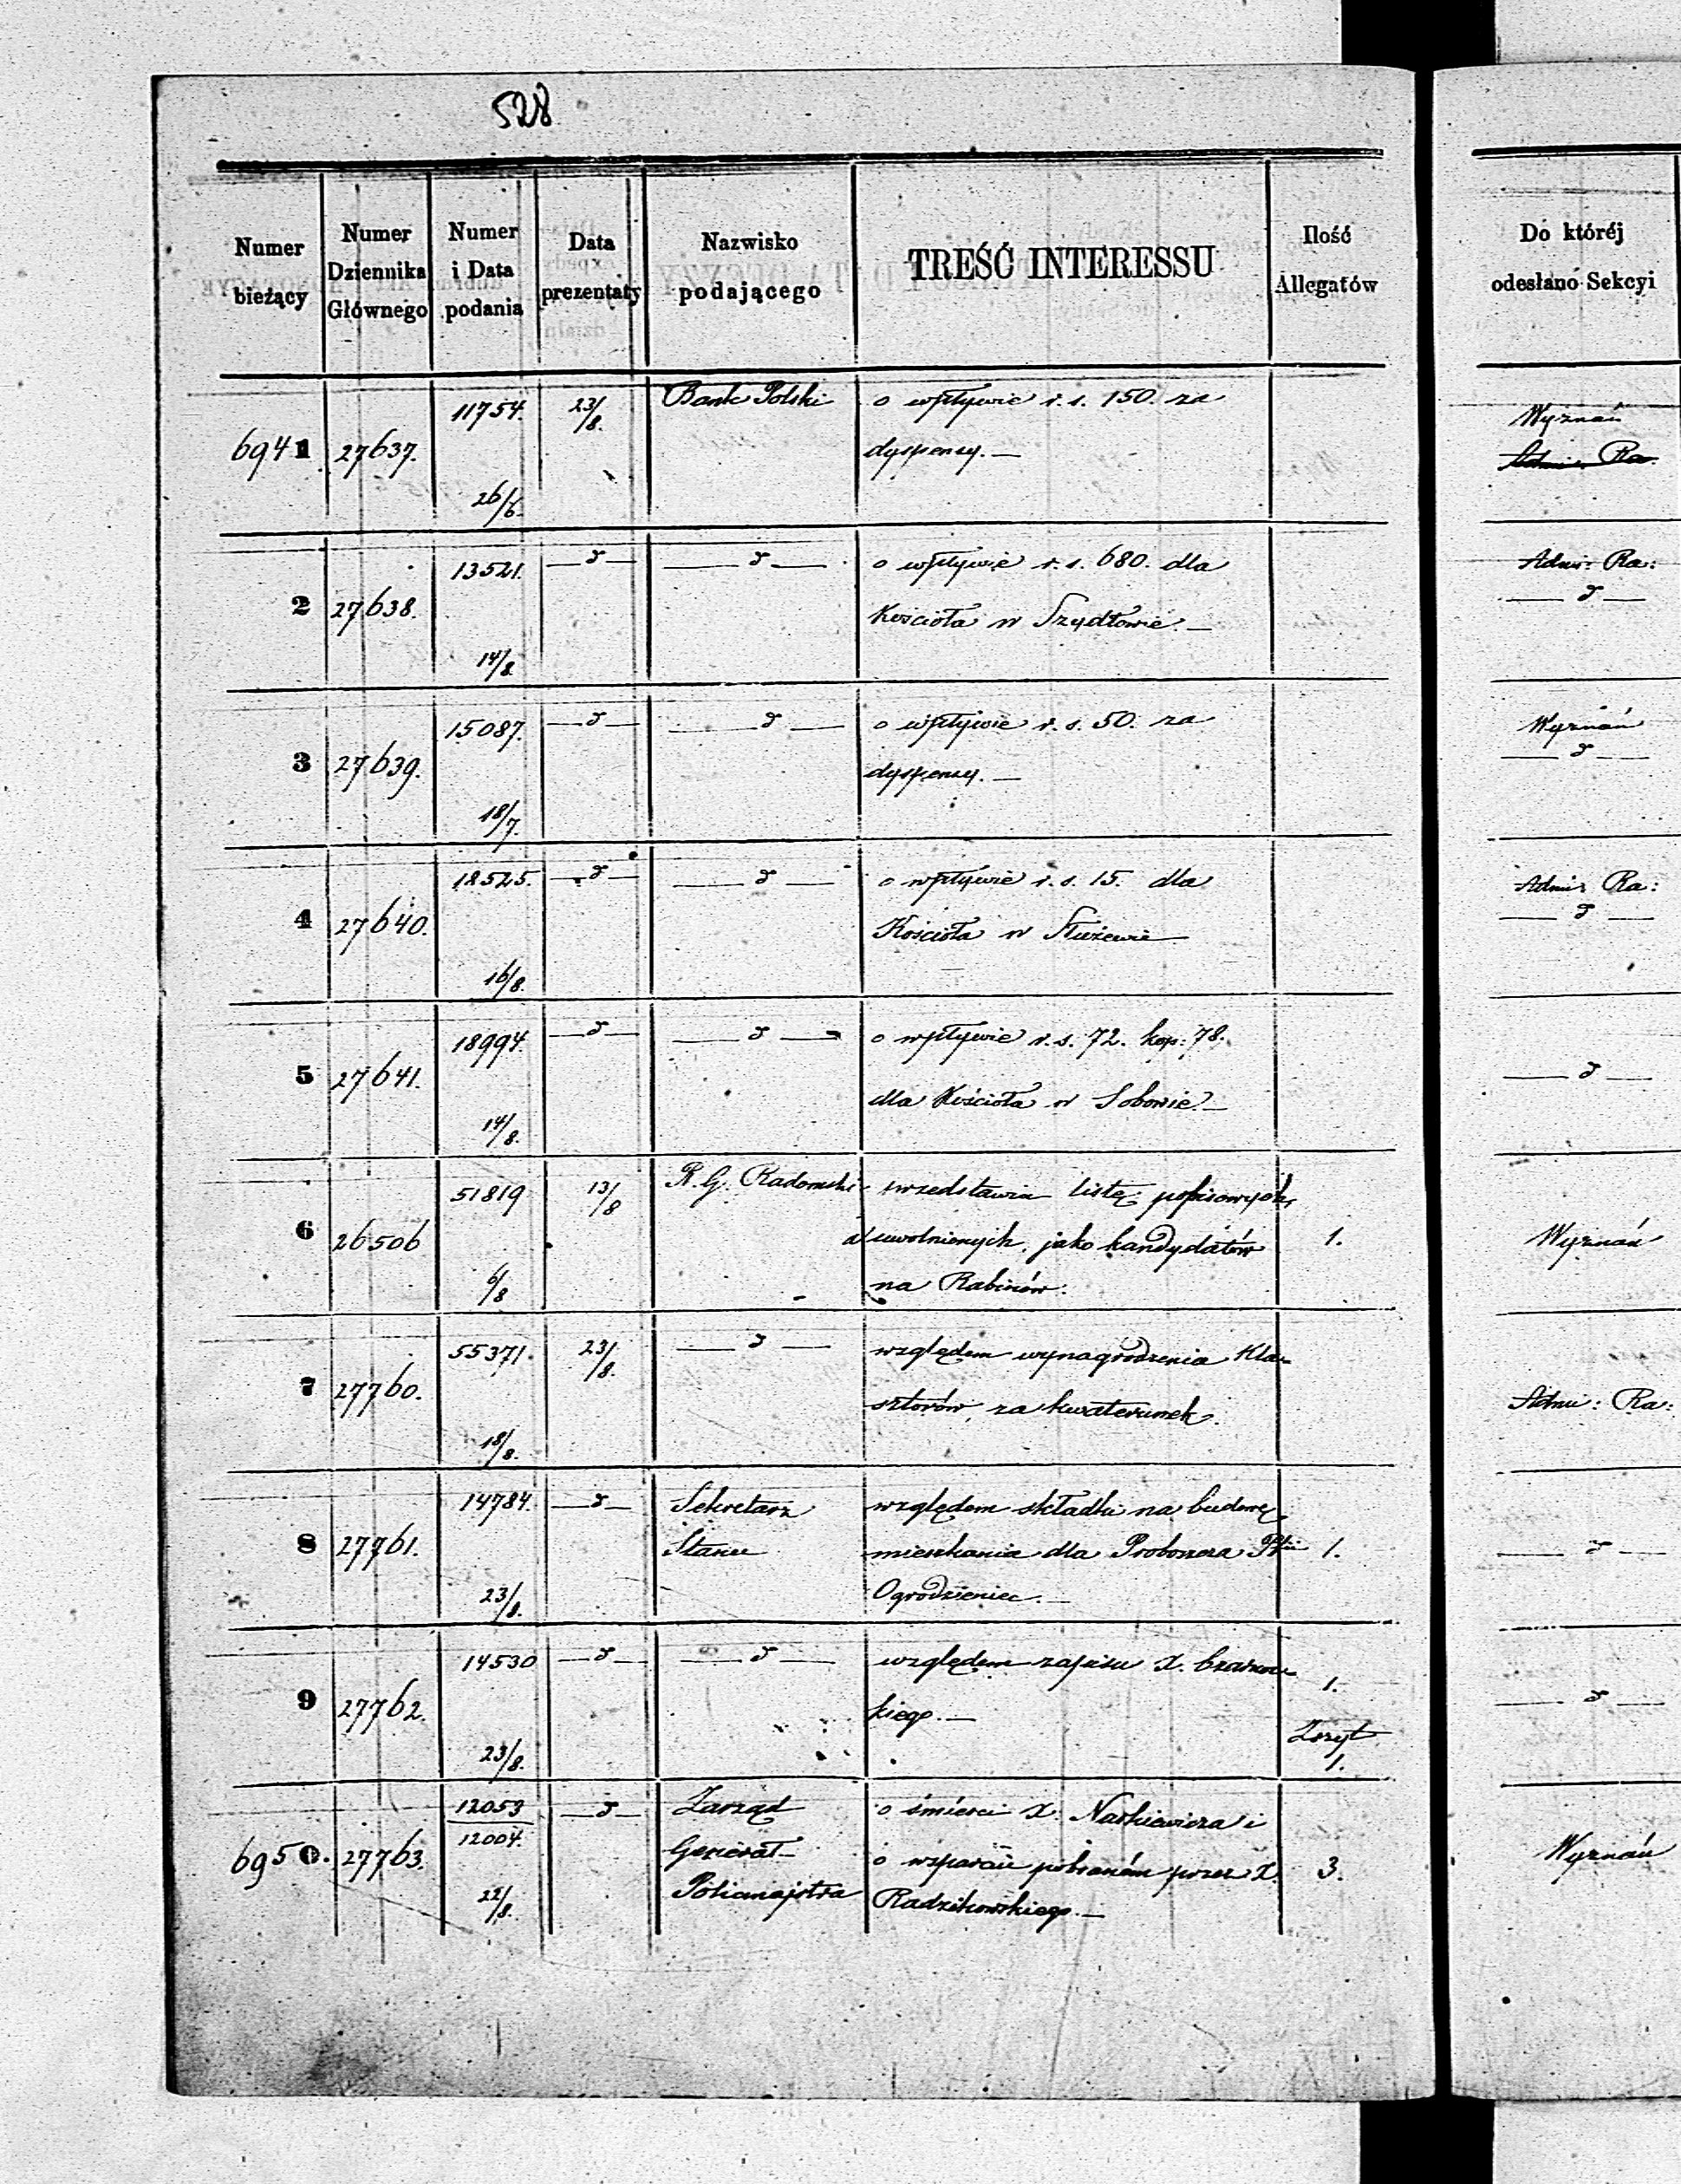 528
Numer bieżący | Numer Dziennika Głównego | Numer i Data podania | Data prezentaty | Nazwisko podającego | TREŚĆ INTERESSU | Ilość Allegatów | Do któréj odesłano Sekcyi
6941 27637. 11754. 26/6. 23/8. Bank Polski
o wpływie r. s. 150. za
dyspensy. —
Wyznań
2 27638. 13521. 14/8. — d — — d —
o wpływie r. s. 680. dla
Kościoła w Szydłowie. —
Adm: Ra:
— d —
3 27639. 15087. 18/7. — d — — d —
o wpływie r. s. 50. za
dyspensy. —
Wyznań
— d —
4 27640. 18525. 16/8. — d — — d —
o wpływie r. s. 15. dla
Kościoła w Służewie
Admi: Ra:
— d —
5 27641. 18994. 14/8. — d — — d —
o wpływie r. s. 72. kop: 78.
dla Kościoła w Sobowie. —
— d —
6 26506 51819 6/8 13/8 R. G. Radomski
przedstawia listę popisowych,
uwolnionych, jako kandydatów
na Rabinów.
1.
Wyznań
7 27760. 55371. 18/8. 23/8. — d —
względem wynagrodzenia Kla-
sztorów za kwaterunek.
Admi: Ra:
8 27761. 14784. 23/8. — d —
Sekretarz
Stanu
względem składki na budowę
mieszkania dla Proboszcza Pfii
Ogrodzieniec. —
1.
— d —
9 27762. 14530 23/8. — d — — d —
względem zapisu X.
kiego. —
1.
Zszyt
1.
— d —
6950. 27763. 12053 12004. 22/8. — d —
Zarząd
Generał-
Policmajstra
o śmierci X. Narkiewicza i
o wsparciu pobraném przez X.
Radzikowskiego. —
3.
Wyznań